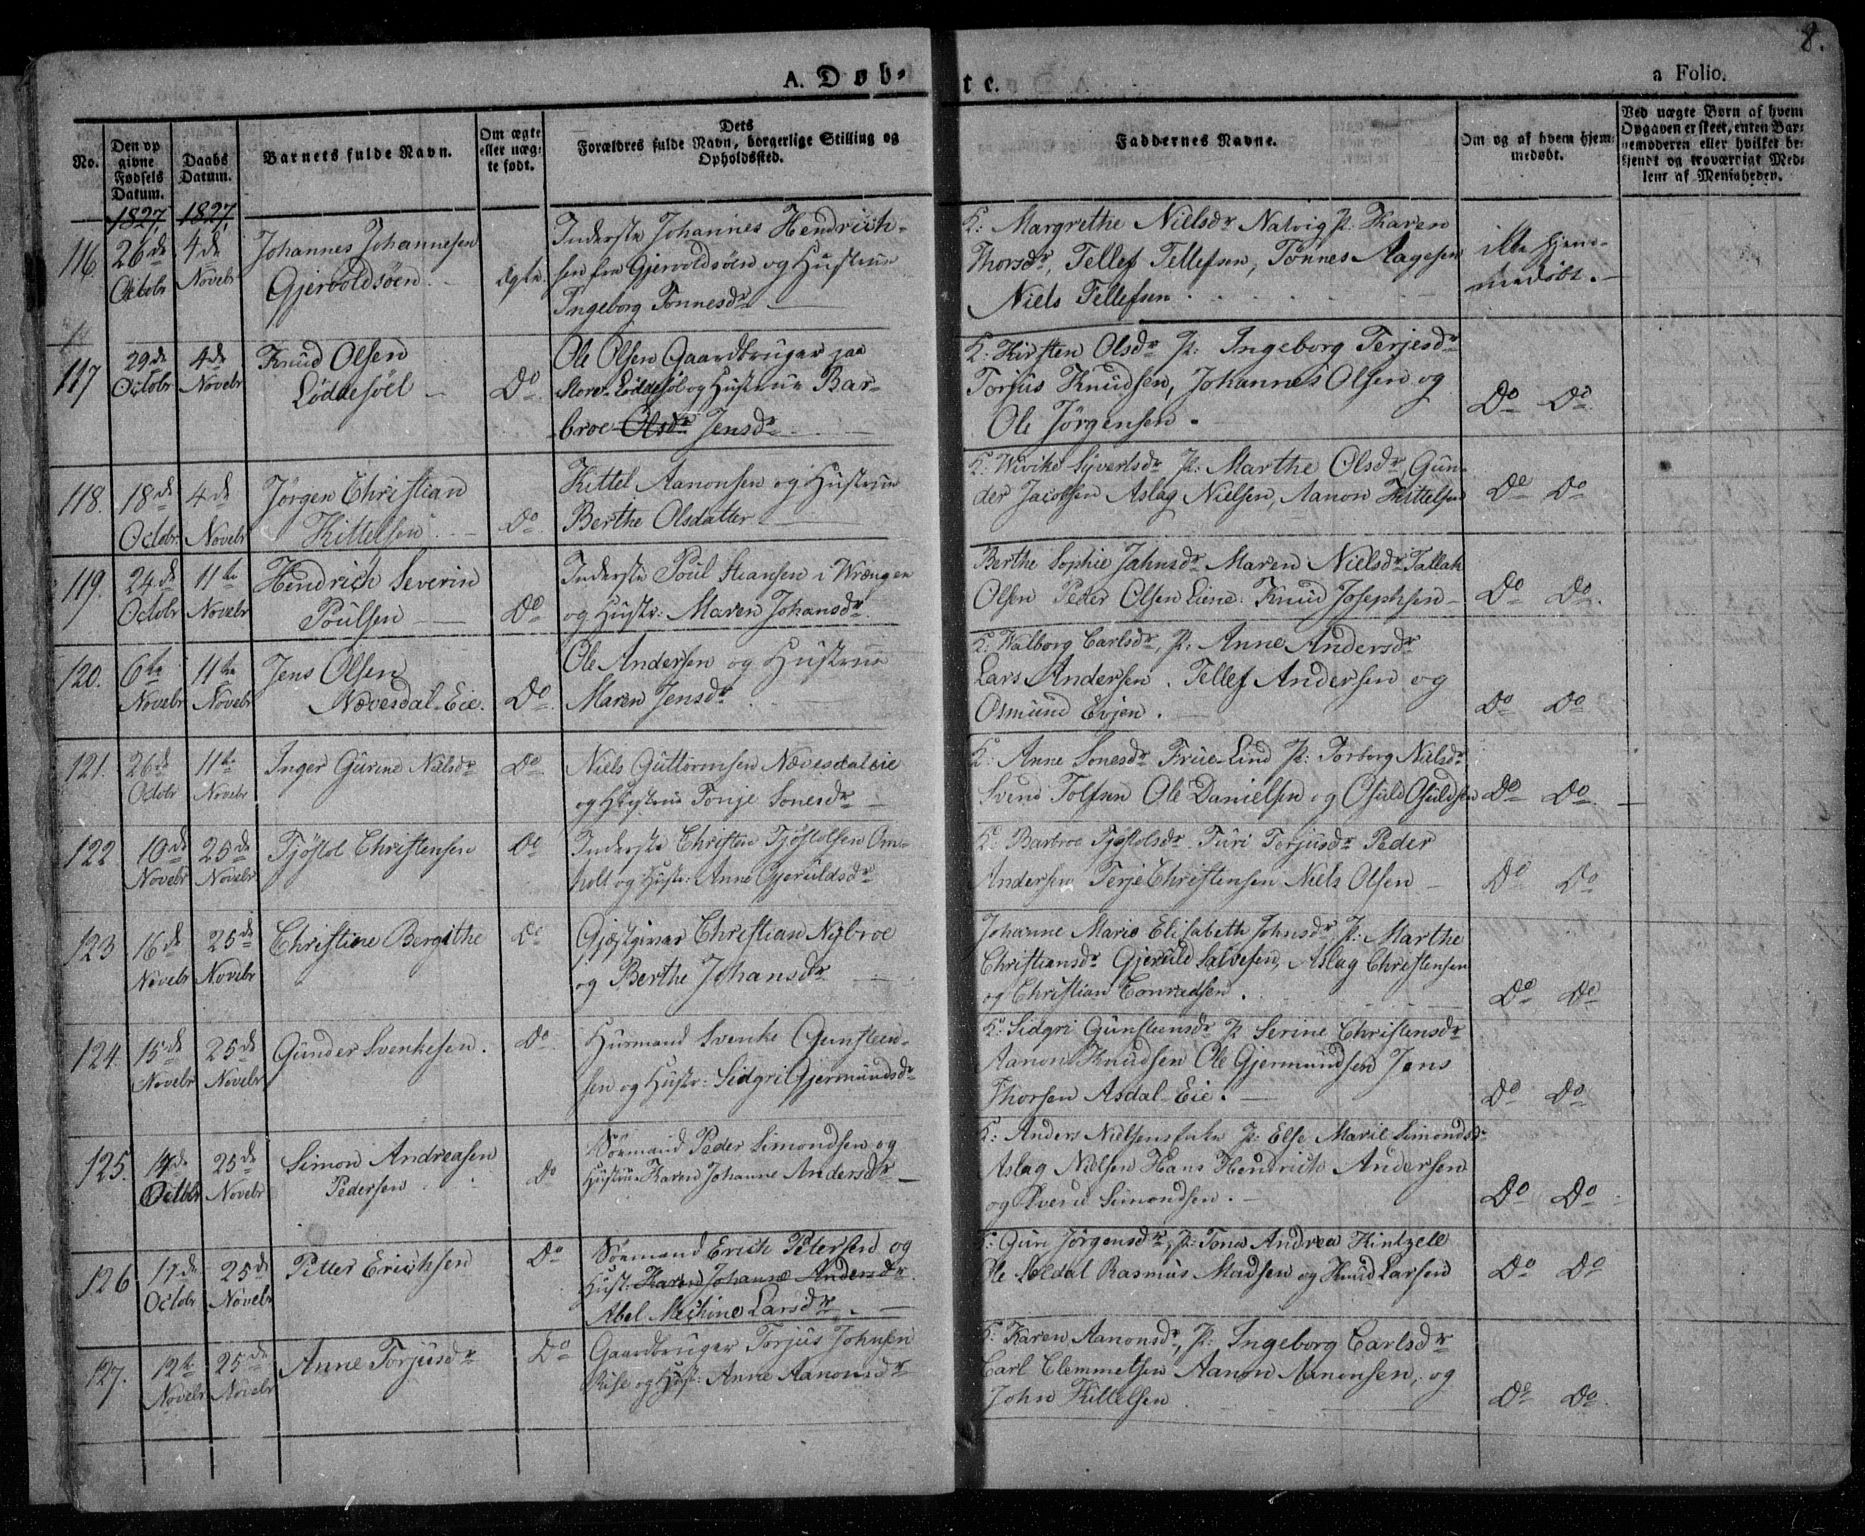 8.
A. Døb-
te.
a Folio.
No.
Den op
givne
Fødsels
Datum.
Daabs
Datum.
Barnets fulde Navn.
Om ægte
eller uæg-
te født.
Dets
Forældres fulde Navn, borgerlige Stilling og
Opholdssted.
Faddernes Navne.
Om og af hvem hjem-
medøbt.
Ved uægte Børn af hvem
Opgaven er skeet, enten Bar-
nemoderen eller hvilket be-
kjendt og troværdigt Med-
lem af Menigheden.
1827. 1827.
116.
26de
Octobr
4de
Novebr
Johannes Johannesen
Gjervoldsöen
ægte
Inderste Johannes Hendrich-
sen fra Gjervoldsöen og Hustrue
Ingeborg Tönnesdr
K: Margrethe Nielsdr Natvig P: Karen
Thorsdr, Tellef Tellefsen, Tönnes Aagesen
Niels Tellefsen
ikke hjem-
medöbt.
117
29de
Octobr
4de
Novebr
Knud Olsen
Löddesöel
Do
Ole Olsen Gaardbruger paa
Store Löddesöl og Hustrue Bar-
broe Olsdr Jensdr
K: Kirsten Olsdr P: Ingeborg Terjesdr
Torjus Knudsen, Johannes Olsen og
Ole Jörgensen.
Do Do
118.
18de
Octobr.
4de
Novebr
Jörgen Christian
Kittelsen
Do
Kittel Aanonsen og Hustrue
Berthe Olsdatter
K: Wivike Syvertsdr P: Marthe Olsdr, Gun-
der Jacobsen Aslag Nielsen, Aanon Kittelsen
Do Do
119.
24de
Octobr
11te
Novebr
Hendrich Severin
Poulsen
Do
Inderste Poul Hansen i Wrængen
og Hustr: Maren Johansdr
Berthe Sophie Jahnsdr Maren Nielsdr Tallak
Olsen Peder Olsen Knud Josephsen
Do Do.
120.
6te
Novebr
11te
Novebr
Jens Olsen
Nævesdal-Eie.
Do
Ole Andersen og Hustrue
Maren Jensdr
K: Walborg Carlsdr, P: Anne Andersdr
Lars Andersen. Tellef Andersen og
Osmund Evjen.
Do Do
121.
26de
Octobr
11te
Novebr
Inger Gurine Nielsdr
Do
Niels Guttormsen Nævesdaleie
og Hustrue Tonje Sonesdr
K: Anne Sonesdr Frue Lind P: Torborg Nielsdr
Svend Tolfsen Ole Danielsen og Osuld Osuldsen
Do Do.
122
10de
Novebr
25de
Novebr
Tjöstol Christensen
Do
Inderste Christen Tjöstolsen Om-
holt og Hustr: Anne Gjeruldsdr
K: Barbroe Tjöstolsdr. Turi Torjusdr Peder
Andersen Terje Christensen Niels Olsen
Do Do
123
16de
Novebr
25de
Novebr
Christine Bergithe
Do
Gjæstgiver Christian Nybroe
og Berthe Johansdr
Johanne Marie Elisabeth Johnsdr P: Marthe
Christiansdr Gjeruld Salvesen, Aslag Christensen
og Christian Conradsen.
Do Do
124.
15de
Novebr
25de
Novebr
Gunder Svenkesen.
Do
Huusmand Svenke Gunsteen-
sen og Hustr: Sidgri Gjermundsdr
K: Sidgri Gunsteensdr P Serine Christensdr
Aanon Knudsen Ole Gjermundsen Jens
Thorsen Asdal-Eie.
Do Do
125.
Octobr
25de
Novebr
Simon Andreasen
Pedersen
Do
Söemand Peder Simondsen og
Hustrue Karen Johanne Andersdr
K: Anders Nielsens P: Else Marie Simondsdr
Aslag Nielsen Hans Hendrich Andersen
og Simondsen.
Do Do
126
17de
Octobr
25de
Novebr
Petter Erichsen
Do
Söemand Erich Petersen og
Hust: Karen Johanne Andersdr
Abel Larsdr.
K: Guri Jörgensdr, P: Tona Andrea Hintzele
Ole Rasmus Madsen og Knud Larsen
Do Do
127.
12te
Novebr
25de
Novebr
Anne Torjusdr
Do
Gaardbruger Torjus Johnsen
Rise og Hust: Anne Aanonsdr
K: Karen Aanonsdr, P: Ingeborg Carlsdr
Carl Clemmetsen Aanon Aanonsen, og
John Kittelsen
Do Do.